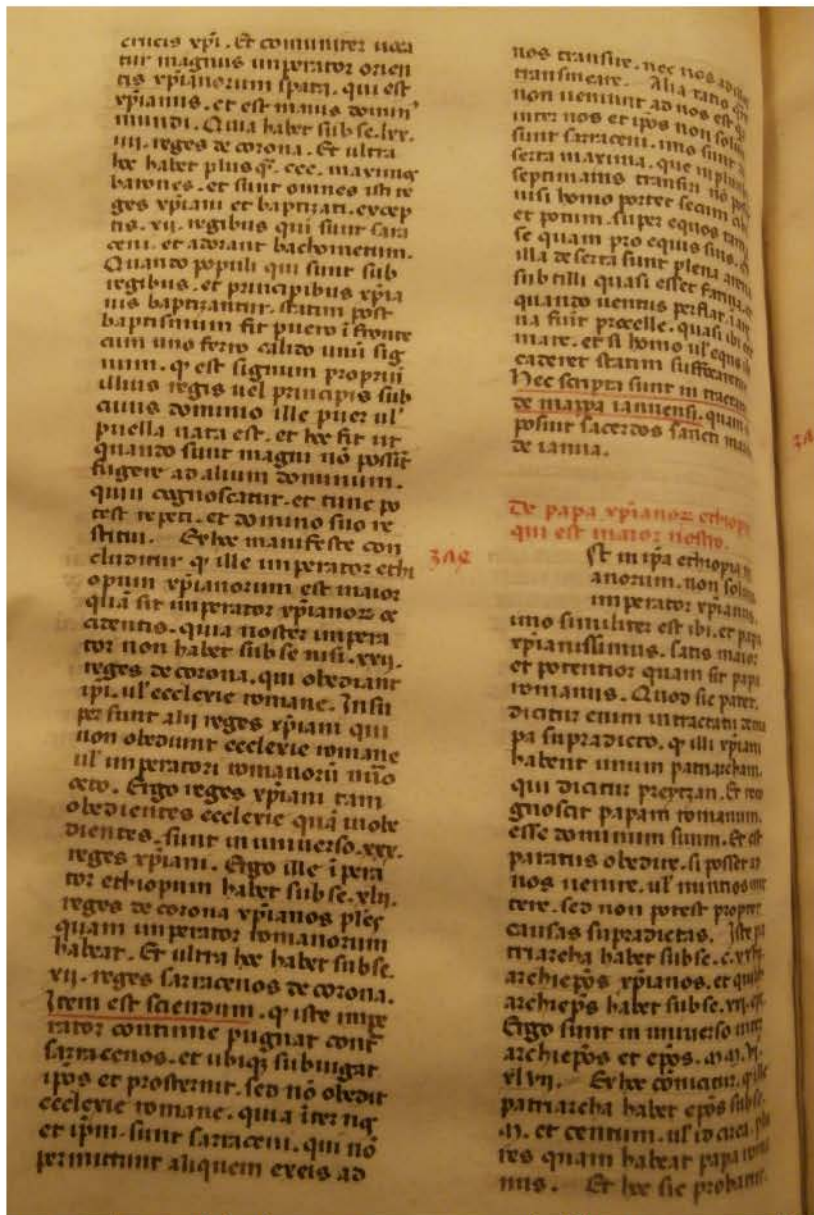 crucis xpi. Et comuniter uoca
tur magnus imperator orien
tis xpianorum spata. qui est
xpianus. et est maius domin'
mundi. Quia habet sub se. lxx.
iiii. reges de corona. Et ultra
hec habet plus q. ccc. maximos
barones. et sunt omnes isti re
ges xpiani et baptizati. excep
tis. xii. regibus qui sunt sara
ceni. et adorant bachometum.
Quando populi qui sunt sub
regibus. et principibus xpia
nis baptizantur. statim post
baptismum fit puero i fronte
cum uno ferro calido unu sig
num. q est signum proprii
illius regis uel principis sub
cuius dominio ille puer ul'
puella nata est. et hec fit ut
quando sunt magni no possit
fugere ad alium dominum.
quin cognoscatur. et tunc po
test repeti. et domino suo re
stitui. Ex hec manifeste con
cluditur q ille imperator ethi
opum xpianorum est maior
qua sit imperator xpianor oc
cidentis. quia noster impera
tor non habet sub se nisi. xxii.
reges de corona. qui obediant
ipi. ul' ecclexie romane. Insu
per sunt alii reges xpiani qui
non obediunt ecclexie romane
ul' imperatori romanoru
octo. Ergo reges xpiani tam
obedientes ecclexie qua inobe
dientes. sunt in uniuerso. xxx.
reges xpiani. Ergo ille ipera
tor ethiopum habet sub se. xlii.
reges de corona xpianos ples
quam imperator romanorum
habeat. Et ultra hec habet sub se.
xii. reges sarracenos de corona.
Item est sciendum. q iste impe
rator continue pugnat cont
sarracenos. et ubiq subiugat
ipos et prosternit. sed no obedit
ecclexie romane. quia iter nos
et ipm. sunt sarraceni. qui no
permittunt aliquem exeis ad
nos transire. nec nos ad illos
transmeare. Alia ratio
non ueniunt ad nos est
inter nos et ipos non solum
sunt sarraceni. imo sunt
serta maxima. que in
septimanis transiri no
nisi homo portet secum
et potum. super equos
se quam pro equis suis.
illa deserta sunt plena arena
subtili quasi esset farina.
quando uentus perflat.
na fiunt procelle. quasi ibi
mare. et si homo ul' equs
caderet statim suffocaretur
Hec scripta sunt in tractatu
de mappa ianuensi. quam
posuit sacerdos sancti marci
de ianua.
De papa xpianor ethiopu
qui est maior nostro.
St in ipa ethiopia
anorum. non solum
imperator xpianus.
imo similiter est ibi. et papa
xpianissimus. satis maior
et potentior quam sit papa
romanus. Quod sic patet.
dicitur enim in tractatu
pa supradicto. q illi xpiani
habent unum patriarcham.
qui dicitur preytzan. Et
gnoscit papam romanum.
esse dominum suum. Et est
paratus obedire. si posset
nos uenire. ul' nuntios
tere. sed non potest propter
causas supradictas. Iste pa
triarcha habet sub se. c. xxvii.
archiepos xpianos. et quilibet
archieps habet sub se. xx.
Ergo sunt in uniuerso inter
archiepos et epos.
xlvii. Ex hec conuicitur. q ille
patriarcha habet epos sub se.
et centum. ul' id circa. plu
res quam habeat papa roma
nus. Et hec sic probatur.